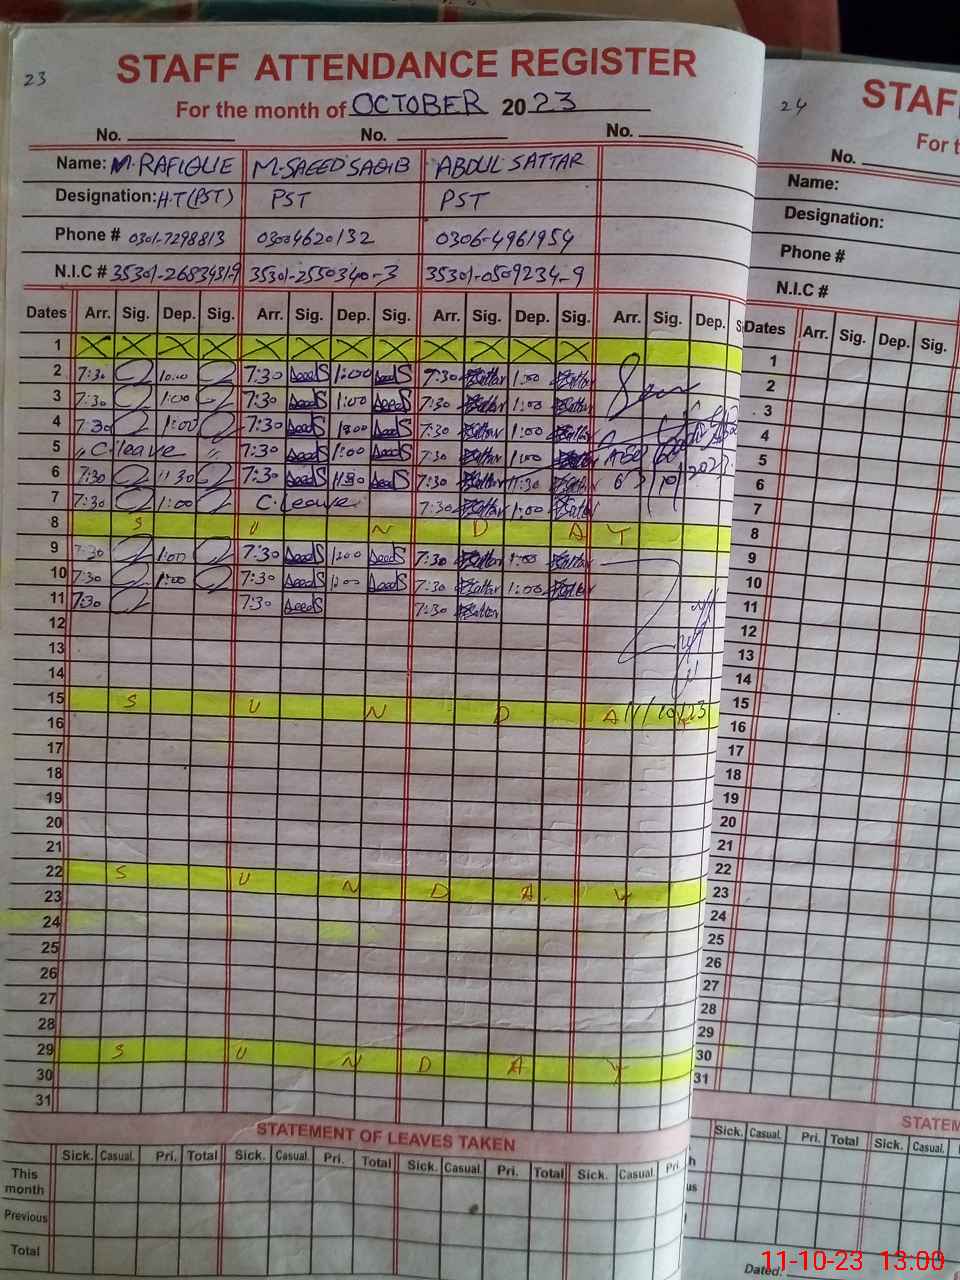 23
STAFF ATTENDANCE REGISTER
For the month of OCTOBER 2023
No. No. No.
Name: M. RAFIQUE M. SAEED SAQIB ABDUL SATTAR
Designation: H.T (PST) PST PST
Phone # 0301-7298813 03004620132 0306-4961954
N.I.C # 35301-2683431-9 35301-2550340-3 35301-0509234-9
Dates Arr. Sig. Dep. Sig. Arr. Sig. Dep. Sig. Arr. Sig. Dep. Sig. Arr. Sig. Dep. S
1 X X X X X X X X X X X X
2 7:30 10:00 7:30 1:00 7:30 1:00
3 7:30 1:00 7:30 1:00 7:30 1:00
4 7:30 1:00 7:30 1:00 7:30 1:00
5 " C. leave " 7:30 1:00 7:30 1:00
6 7:30 11:30 7:30 11:30 7:30 11:30
7 7:30 1:00 C. Leave 7:30 1:00
8 S U N D A Y
9 7:30 1:00 7:30 1:00 7:30 1:00
10 7:30 1:00 7:30 1:00 7:30 1:00
11 7:30 7:30 7:30
12
13
14
15 S U N D A Y 11/10/23
16
17
18
19
20
21
22 S U N D A Y
23
24
25
26
27
28
29 S U N D A Y
30
31
STATEMENT OF LEAVES TAKEN
Sick. Casual. Pri. Total Sick. Casual. Pri. Total Sick. Casual. Pri. Total Sick. Casual. Pri.
This month
Previous
Total
24
STAF
For t
No.
Name:
Designation:
Phone #
N.I.C #
Dates Arr. Sig. Dep. Sig.
1
2
3
4
5
6
7
8
9
10
11
12
13
14
15
16
17
18
19
20
21
22
23
24
25
26
27
28
29
30
31
STATEM
Sick. Casual. Pri. Total Sick. Casual.
h
us
Dated:
11-10-23 13.00